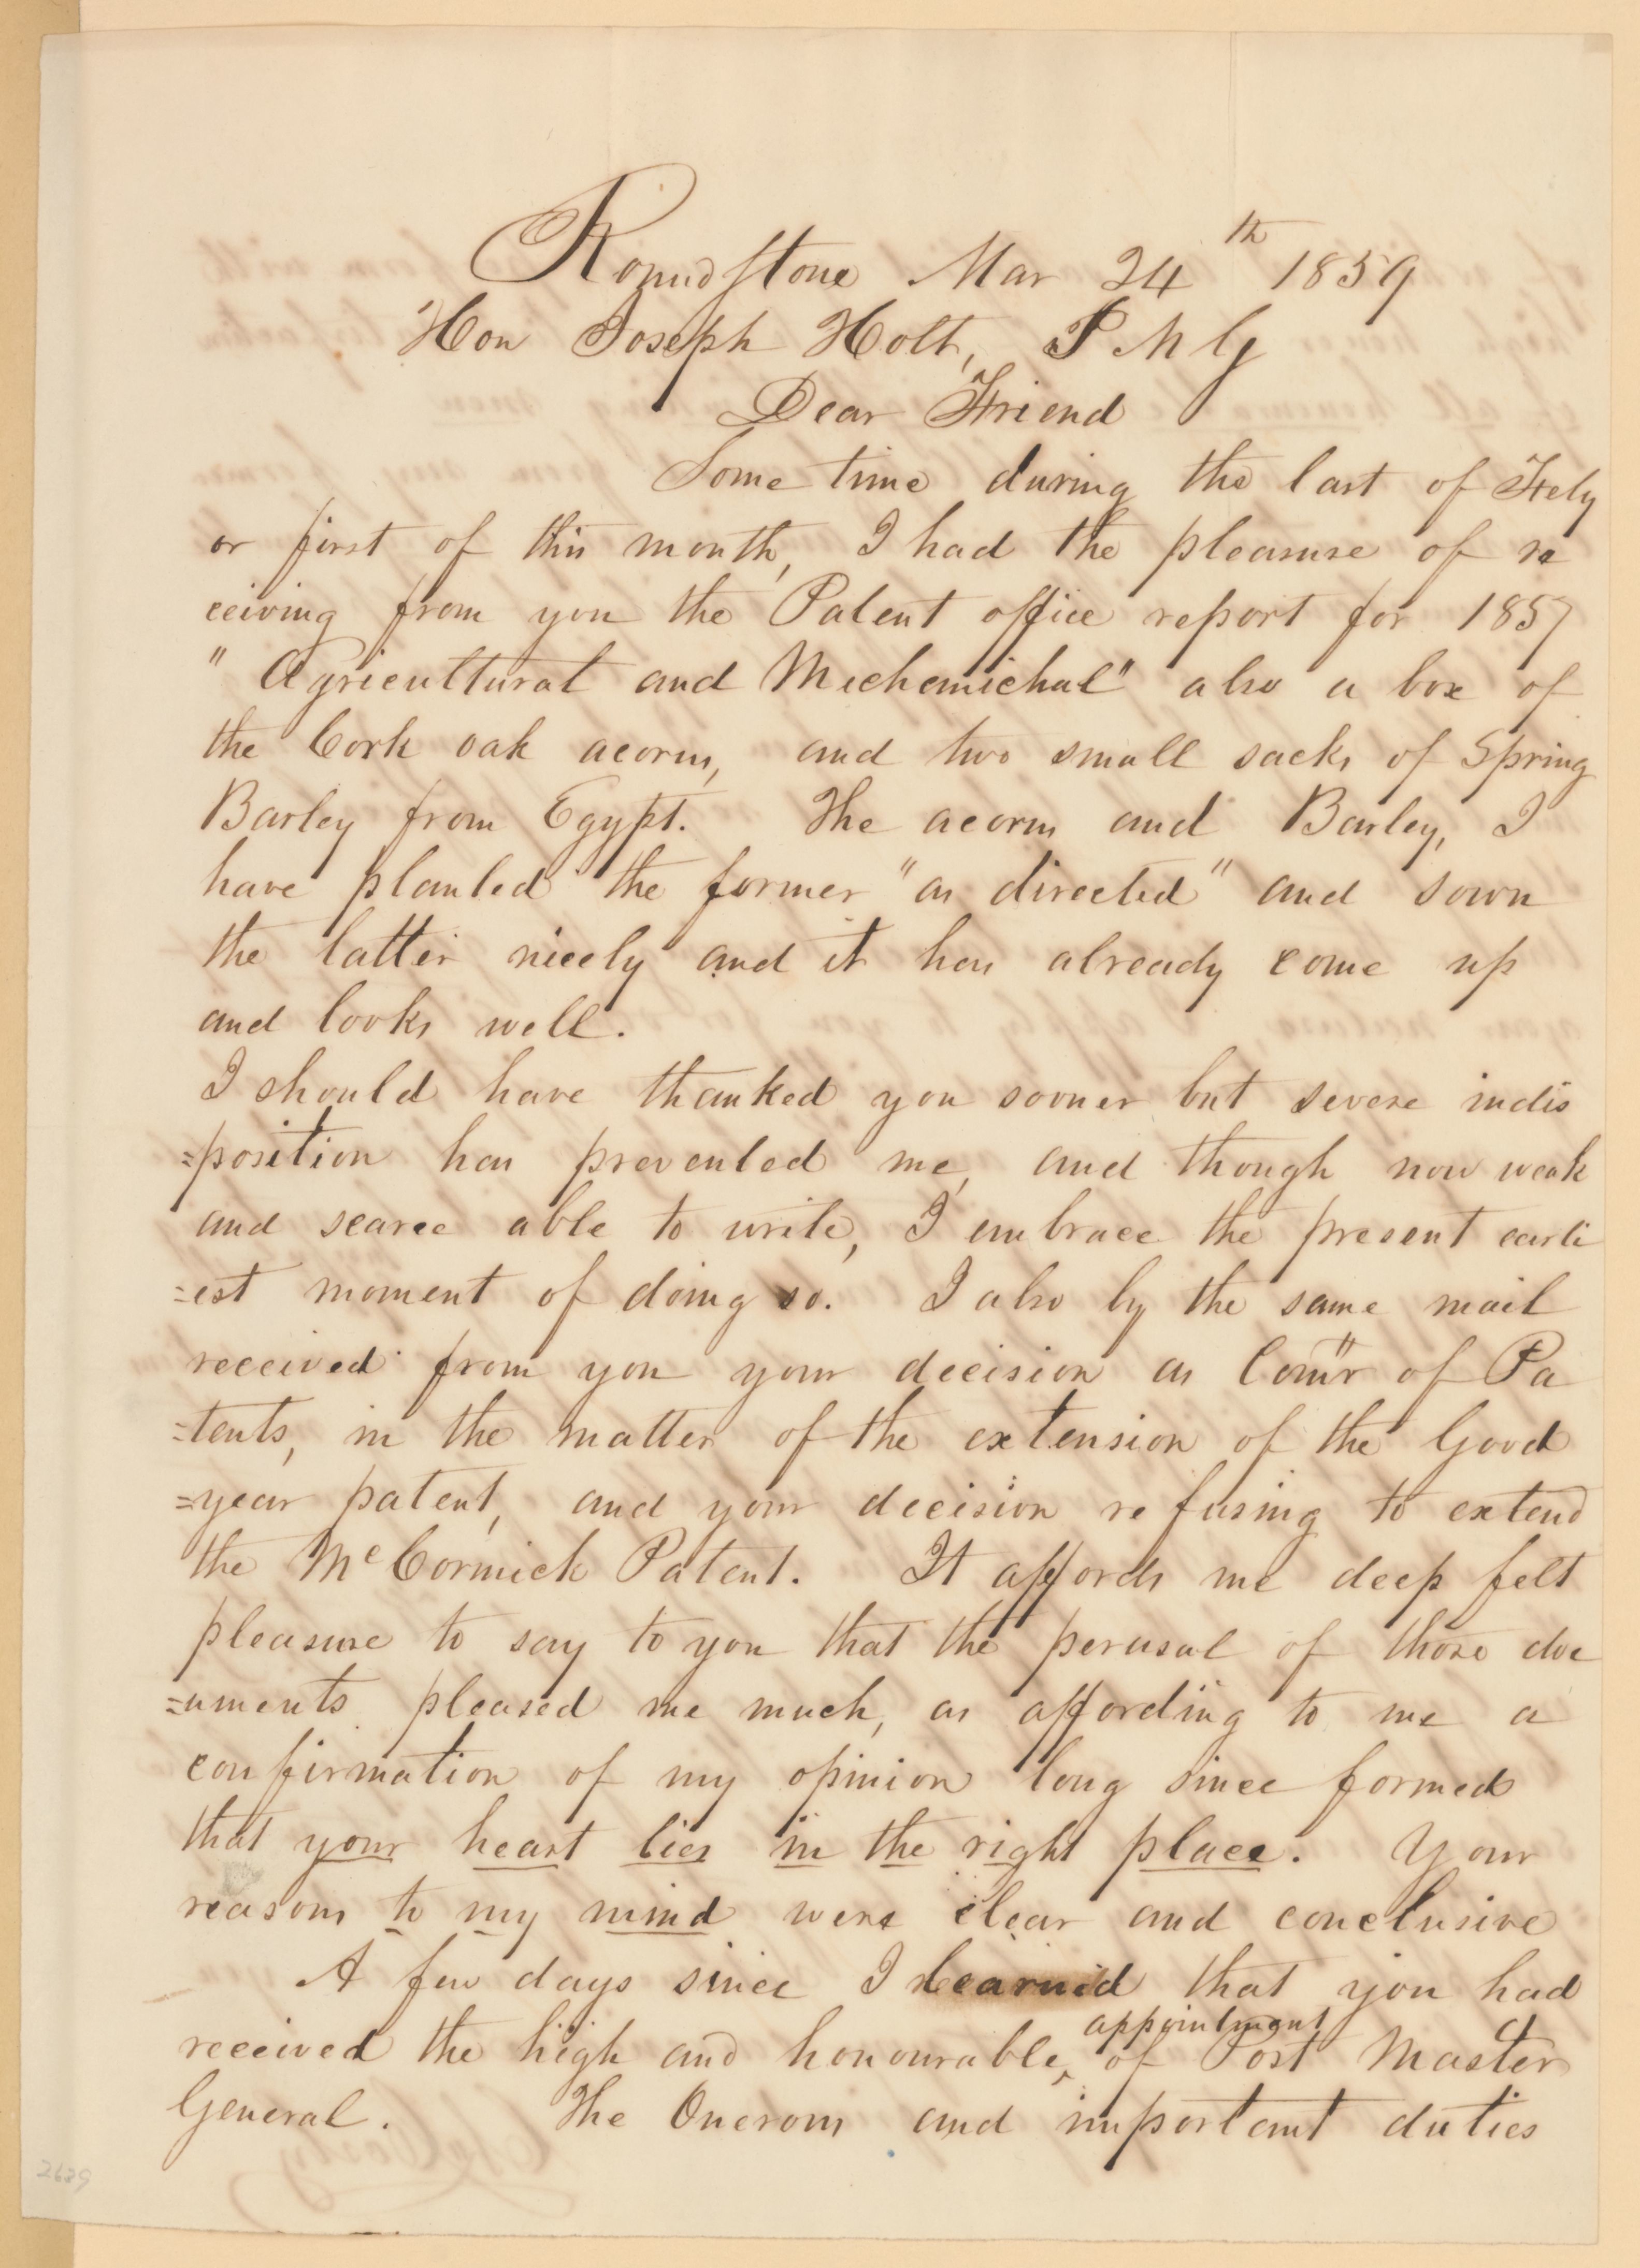 Roundstone Mar 24th 1859
Hon Joseph Holt, P M G
Dear Friend
Some time during the last of Feby
or first of this month, I had the pleasure of re
ceiving from you the Patent office report for 1857
"Agricultural and Mechemichal" also a box of
the Cork oak acorns, and two small sacks of Spring
Barley from Egypt. The acorns and Barley, I
have planted the former "as directed" and sown
the latter nicely and it has already come up
and looks well.
I should have thanked you sooner but severe indis
=position has prevented me, and though now weak
and scarce able to write, I embrace the present earli
=est moment of doing so. I also by the same mail
received from you your decision as Com"r of Pa
=tents, in the matter of the extension of the Good
=year patent, and your decision refusing to extend
the McCormick Patent. It affords me deep felt
pleasure to say to you that the perusal of those doc
=uments pleased me much, as affording to me a
confirmation of my opinion long since formed
that your heart lies in the right place. Your
reasons to my mind were clear and conclusive
A few days since I learned that you had
appointment
received the high and honourable, of Post Master
General. The Onerous and important duties
2629